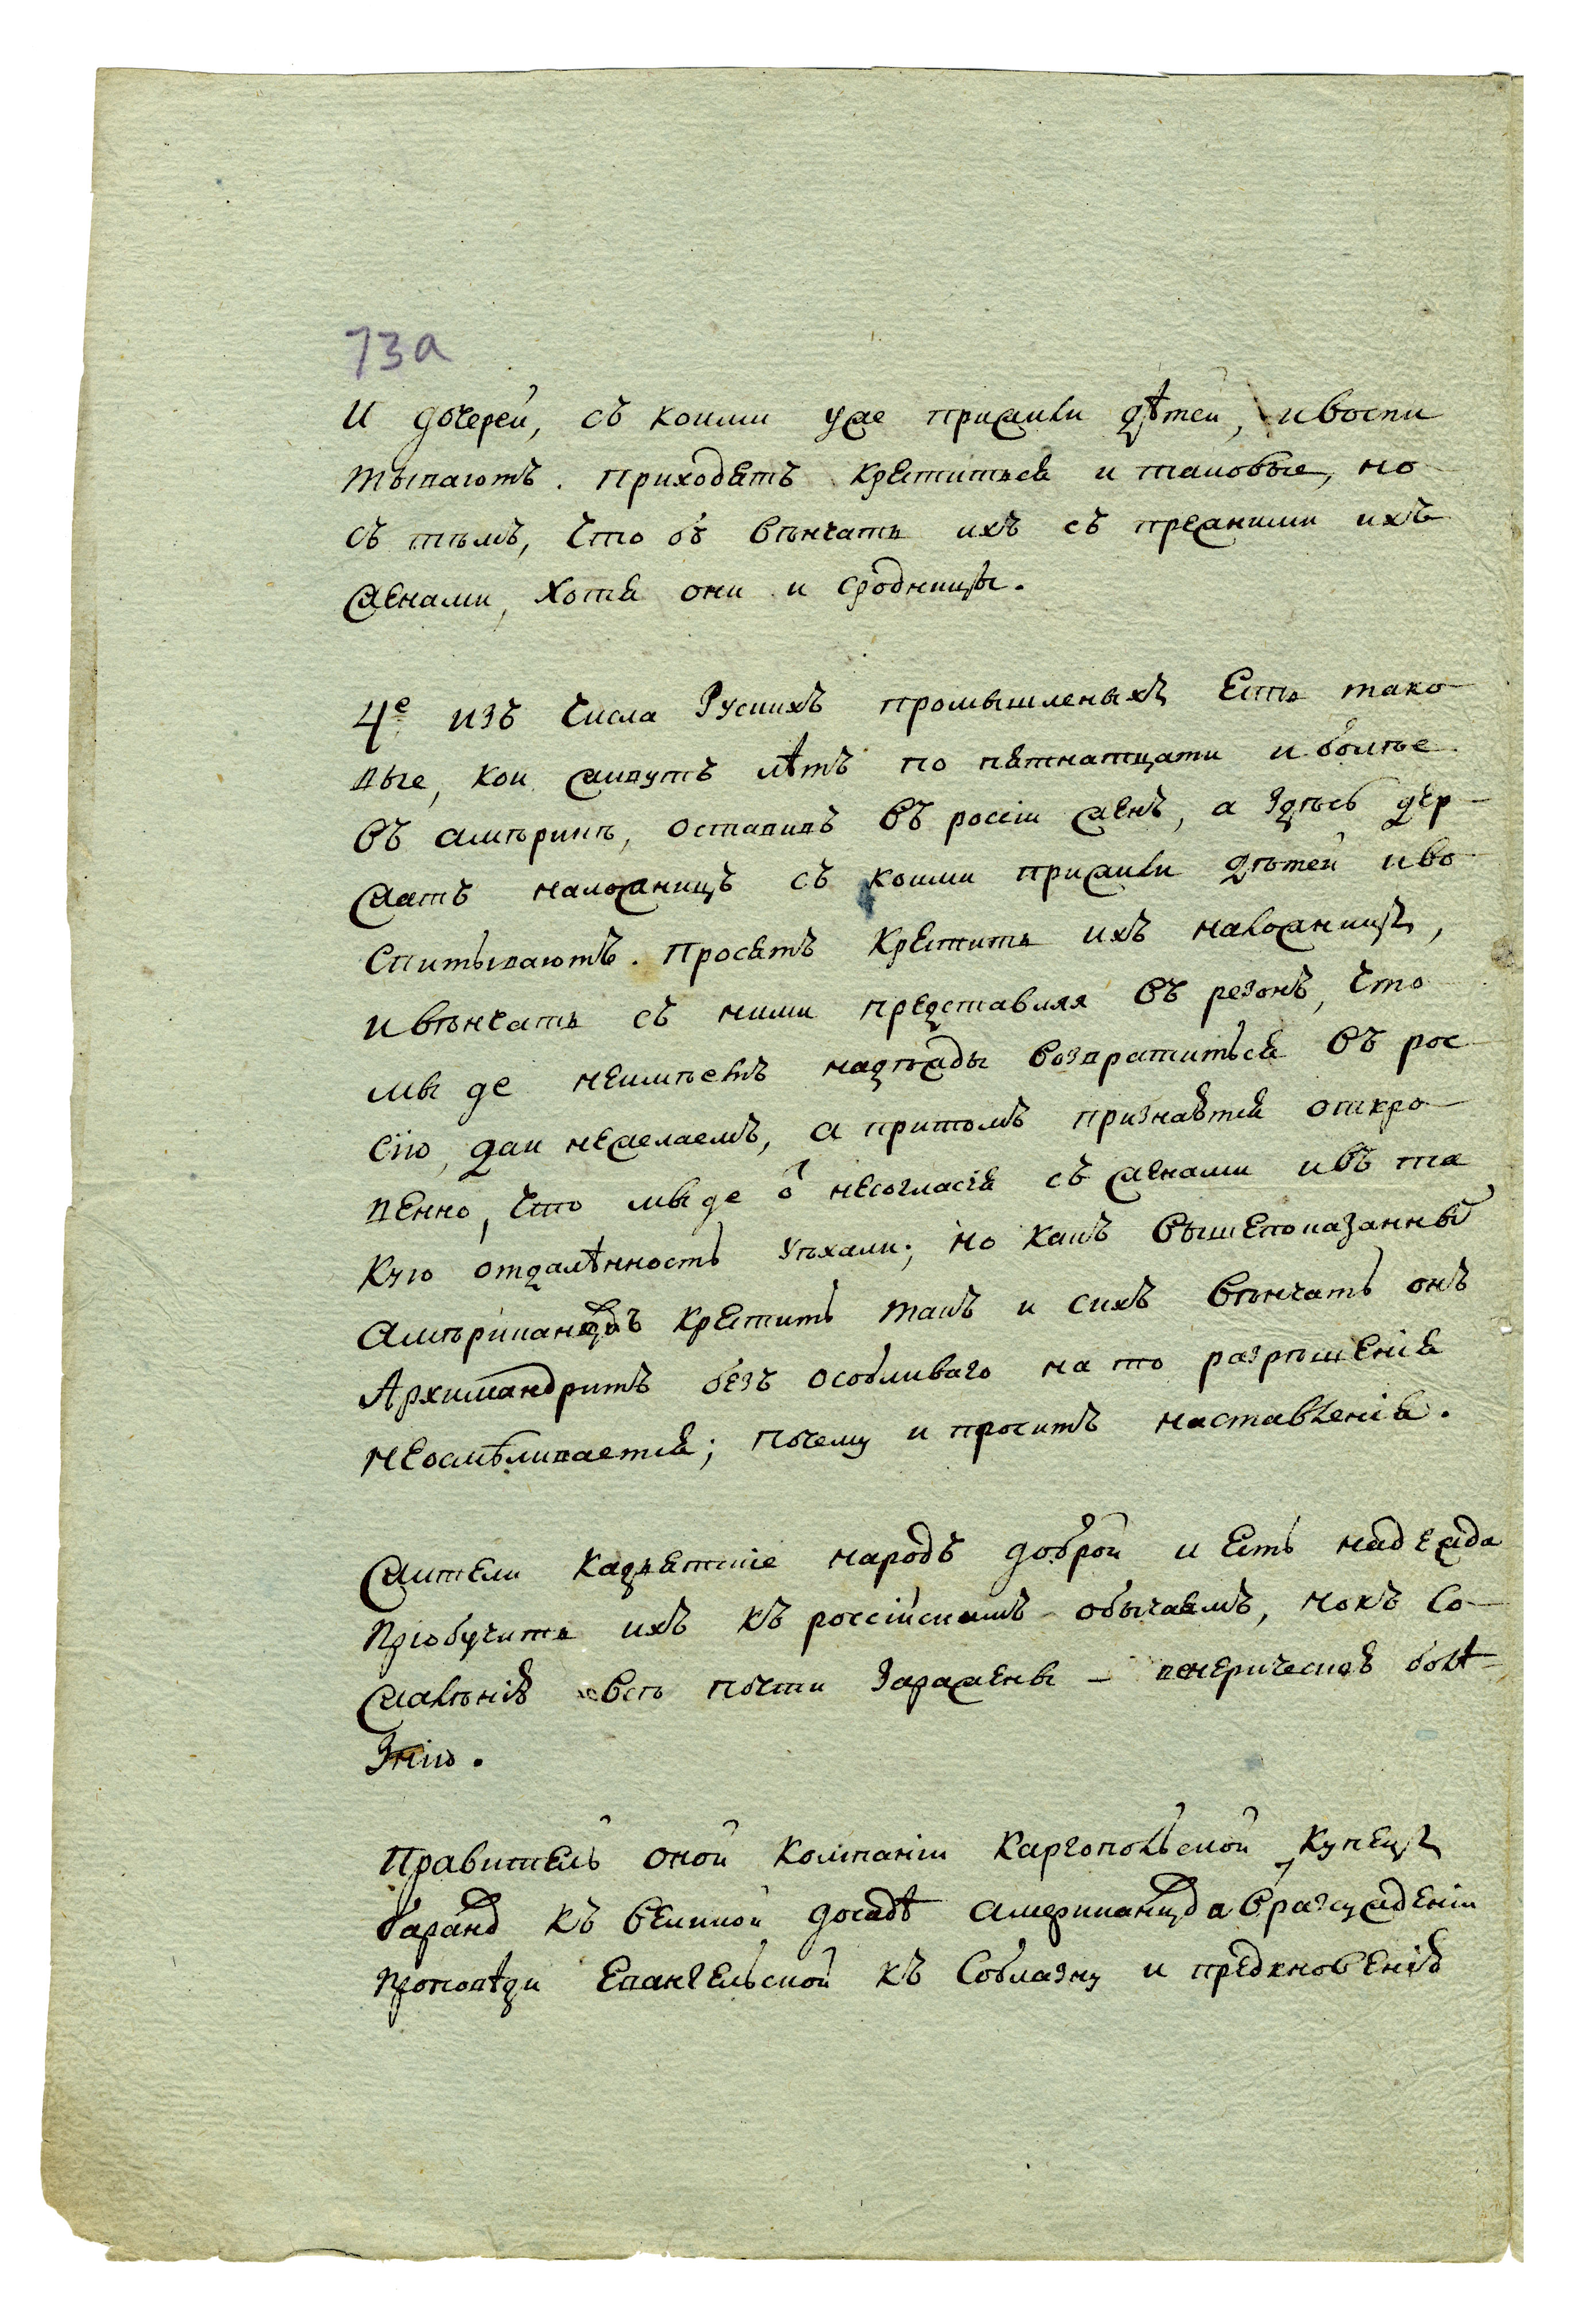 73а
И дочерей, съ коими уже прижили дѣтей, и воспи
тываютъ. приходятъ креститься и таковые, но
съ тѣмъ, что бъ вѣнчать ихъ съ прежними ихъ
женами, хотя они и сродницы.
4е изъ числа Рускихъ промышленыхъ Есть тако
вые, кои живутъ лѣтъ по пятнатцати и болѣе
въ америкѣ, оставивъ въ россіи женъ, а здѣсь дер-
жатъ наложницъ съ коими прижили дѣтей и во
спитываютъ. просятъ крестить ихъ наложницъ,
и вѣнчать съ ними представляя въ резонъ, что
мы де неимѣемъ надѣжды возвратиться въ рос
сію, даи нежелаемъ, а притомъ признаются откро-
венно, что мы де ѿ несогласія съ женами и въ та
кую отдалѣнность уѣхали; но какъ вышепоказанныхъ
американцовъ крестить такъ и сихъ вѣнчать онъ
Архимандритъ безъ особливаго на то разрѣшенія
неосмѣливается; почему и проситъ наставленія.
Жители кадьятскіе народъ доброй и есть надежда
пріобучить ихъ къ россійскимъ обычаямъ, но къ со-
жалѣнію всѣ почти заражены – венерическою болѣ-
знію.
Правитель оной компаніи каргопольской купецъ
баранов къ великой досадѣ американцов в разсужденіи
проповѣди евангельской къ соблазну и преткновенію